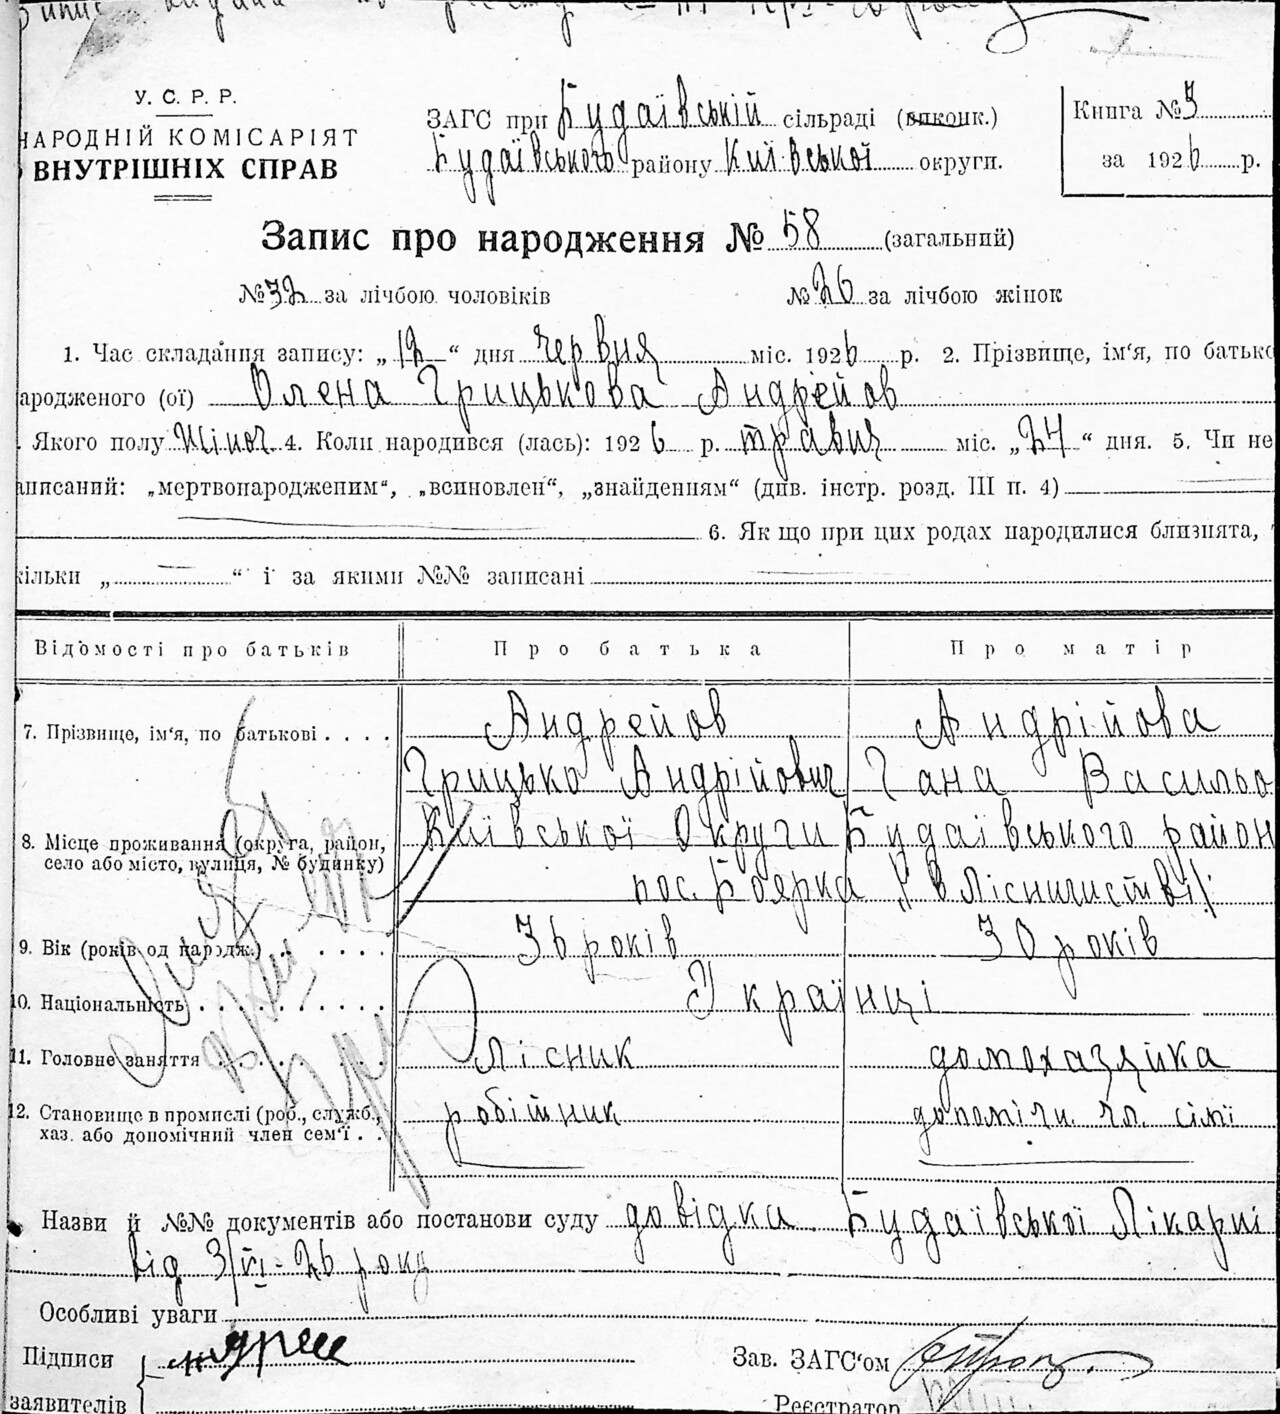 У. С. Р. Р.
НАРОДНІЙ КОМІСАРІЯТ
ВНУТРІШНІХ СПРАВ
ЗАГС при Будаївській сільраді (виконк.)
Будаївського району Київської округи.
Книга № 3
за 1926 р.
Запис про народження № 58 (загальний)
№ 32 за лічбою чоловіків № 26 за лічбою жінок
1. Час складання запису: „12“ дня червня міс. 1926 р. 2. Прізвище, ім‘я, по батько
ародженого (ої) Олена Грицькова Андрейов
Якого полу жіноч 4. Коли народився (лась): 1926 р. травня міс. „24“ дня. 5. Чи не
аписаний: „мертвонародженим“, „всиновлен“, „знайденням“ (див. інстр. розд. III п. 4)
6. Як що при цих родах народилися близнята,
кільки „ “ і за якими №№ записані
Відомості про батьків Про батька Про матір
7. Прізвище, ім‘я, по батькові . . . . Андрейов Андрійова
Грицько Андрійович Гана Васильо
8. Місце проживання (округа, район, село або місто, вулиця, № будинку) Київської Округи Будаївського район
пос. Боярка /: в лісничистві :/
9. Вік (років од народж.) 36 років 30 років
10. Національність Українці
11. Головне заняття лісник домохазяйка
12. Становище в промислі (роб., служб., хаз. або допомічний член сем‘ї . . робітник допомічн. чл. сімї
Назви й №№ документів або постанови суду довідка Будаївської Лікарні
від 3/VI-26 року
Особливі уваги
Підписи
заявителів
Зав. ЗАГС‘ом
Реєстратор